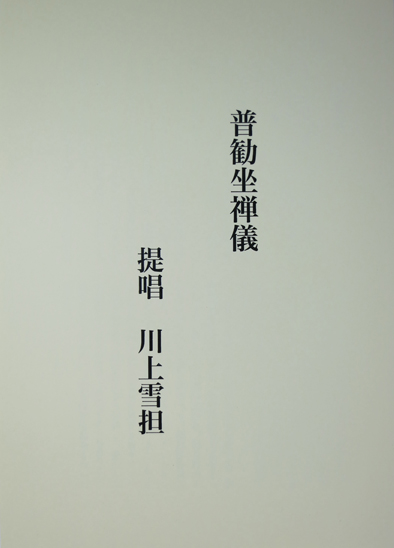 普勧坐禅儀
提唱　川上雪担